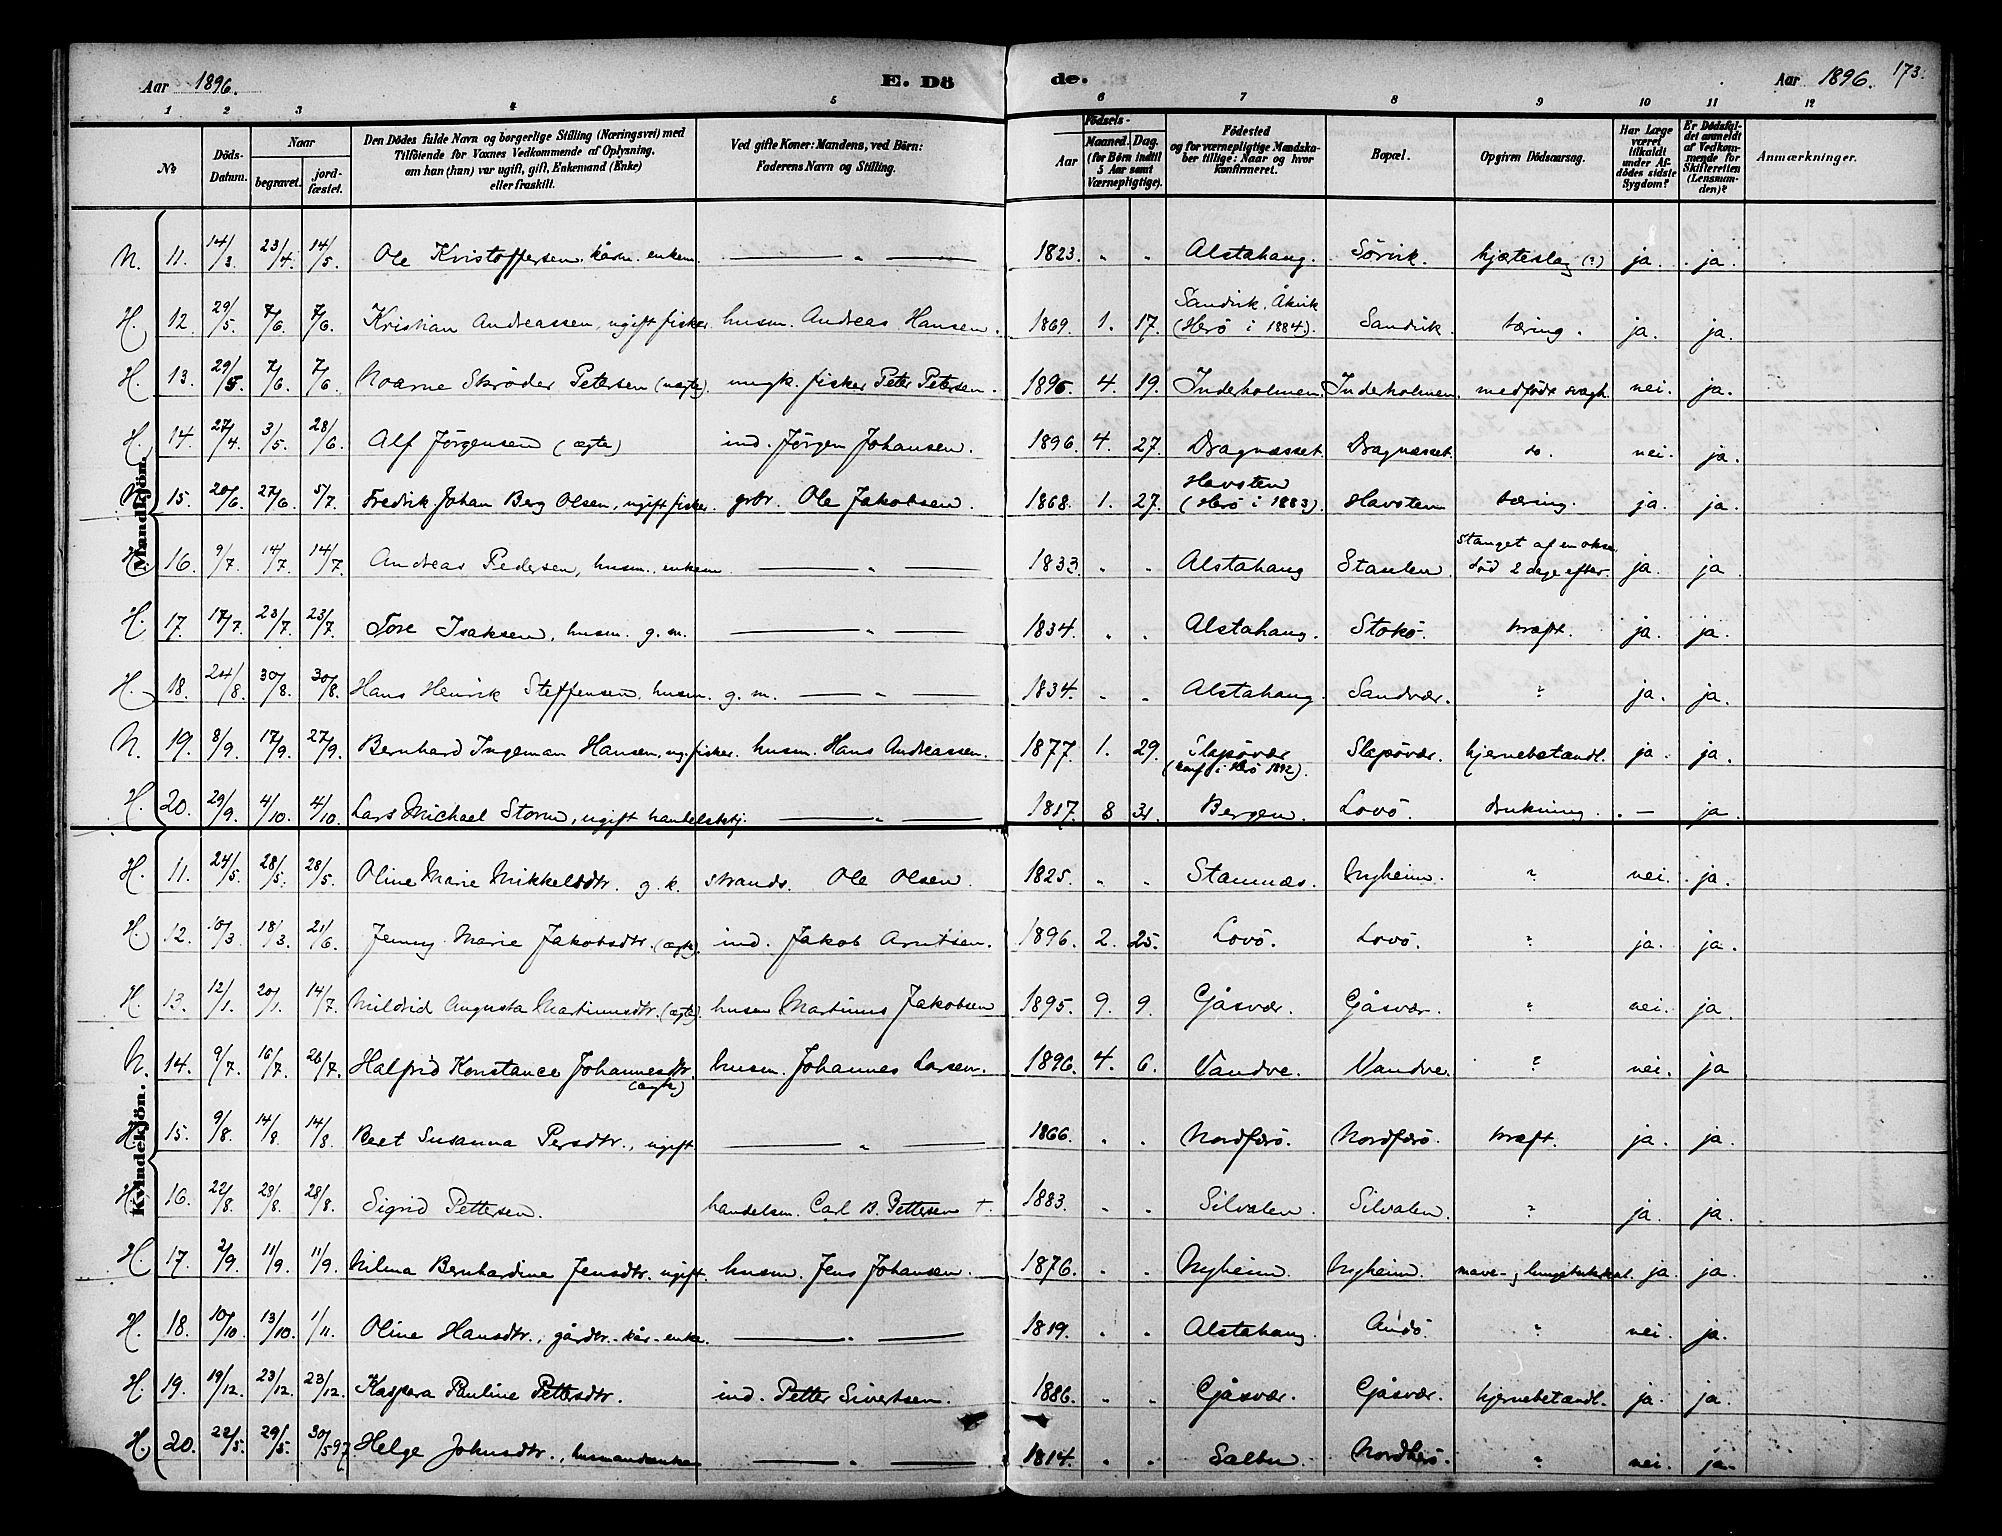 Aar 1896. E. Dö de. Aar 1896. 173.
1 2 3 4 5 6 7 8 9 10 11 12
№ Döds-Datum. Naar begravet. jord-fæstet. Den Dödes fulde Navn og borgerlige Stilling (Næringsvei) med Tilföiende for Voxnes Vedkommende af Oplysning, om han (hun) var ugift, gift, Enkemand (Enke) eller fraskilt. Ved gifte Koner: Mandens, ved Börn: Faderens Navn og Stilling. Födsels- Aar Maaned. Dag. (for Börn indtil 5 Aar samt Værnepligtige). Födested og for værnepligtige Mandskaber tillige: Naar og hvor konfirmeret. Bopæl. Opgiven Dödsaarsag. Har Læge været tilkaldt under Afdödes sidste Sygdom? Er Dödsfaldet anmeldt af Vedkommende for Skifteretten (Lensmanden)? Anmærkninger.
Mandkjön.
N. 11. 14/3. 23/4. 14/5. Ole Kristoffersen, kårm. enkem. — " — 1823. " " Alstahaug. Sörvik. hjerteslag (?) ja. ja.
H. 12. 29/5. 7/6. 7/6. Kristian Andreassen, ugift fisker. husm. Andreas Hansen. 1869. 1. 17. Sandvik, Åkvik (Herö i 1884). Sandvik. tæring. ja. ja.
H. 13. 29/5. 7/6. 7/6. Skröder Petersen (uægte) ungk. fisker Peter Petersen. 1896. 4. 19. Inderholmen. Inderholmen. medfödt svagh. nei. ja.
H. 14. 27/4. 3/5. 28/6. Alf Jörgensen (ægte) ind. Jörgen Johansen. 1896. 4. 27. Dragnæsset. Dragnæsset. do. nei. ja.
N. 15. 20/6. 27/6. 5/7. Fredrik Johan Berg Olsen, ugift fisker. gbr. Ole Jakobsen. 1868. 1. 27. Havsten (Herö i 1883). Havsten tæring. ja. ja.
H. 16. 9/7. 14/7. 14/7. Andreas Pedersen, husm. enkem — " — 1833. " " Alstahaug Staulen. Stanget af en okse. död 2 dage efter. ja. ja
H. 17. 17/7. 23/7. 23/7. Tore Isaksen, husm. g. m. — " — 1834. " " Alstahaug. Stokö. kræft. ja. ja.
H. 18. 24/8. 30/8. 30/8. Hans Henrik Steffensen, husm. g. m. — " — 1834. " " Alstahaug. Sandvær. ? ja. ja.
N. 19. 8/9. 17/9. 27/9. Bernhard Ingeman Hansen, ug. fisker. husm. Hans Andreassen. 1877. 1. 29. Slapövær (konf. i Herö 1892). Slapövær. hjernebetændl. ja. ja.
H. 20. 29/9. 4/10. 4/10. Lars Michael Storm, ugift handelsbetj. — " — 1817. 8 31. Bergen. Lovö. Drukning. — ja.
Kvindekjön.
H. 11. 24/5. 28/5. 28/5. Oline Marie Mikkelsdtr. g. k. strands. Ole Olsen. 1825. " " Stamnæs. Nyheim. ? nei. ja.
H. 12. 10/3. 18/3. 21/6. Jenny Marie Jakobsdtr. (ægte). ind. Jakob Arntsen. 1896. 2. 25. Lovö. Lovö. ? ja. ja.
H. 13. 12/1. 20/1. 14/7. Mildrid Augusta Martinusdtr. (ægte). husm Martinus Jakobsen 1895. 9. 9. Gåsvær. Gåsvær. ? nei. ja
N. 14. 9/7. 16/7. 26/7. Halfrid Konstance Johannesdtr. (ægte) husm. Johannes Larsen. 1896. 4. 6. Vandve. Vandve. ? nei. ja
H. 15. 9/8. 14/8. 14/8. Beret Susanna Persdtr., ugift — " — 1866. " " Nordherö. Nordherö. kræft. ja. ja.
H. 16. 22/8. 28/8. 28/8. Sigrid Pettersen. handelsm. Carl B. Pettersen † 1883. " " Silvalen. Silvalen. ? ja. ja.
H. 17. 2/9. 11/9. 11/9. Milna Bernhardine Jensdtr. ugift. husm. Jens Johansen. 1876. " " Nyheim. Nyheim. mave- og lungetuberkul. ja. ja.
H. 18. 10/10. 13/10. 1/11. Oline Hansdtr., gårdbr. kår-enke. — " — 1819. " " Alstahaug. ? nei. ja.
H. 19. 19/12. 23/12. 23/12. Kaspara Pauline Pettersdtr. ind. Petter Sivertsen. 1886. " " Gåsvær. Gåsvær. hjernebetændl. ja. ja.
H. 20. 22/5. 29/5. 30/5 97. Helge Johnsdtr., husmandsenke — " — 1814. " " Saltn. Nordherö. ? nei. ja.